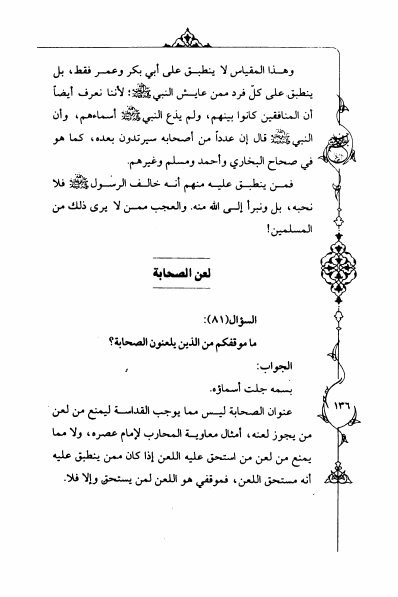 وهذا المقياس لا ينطبق على أبي بكر وعمر فقط، بل
ينطبق على كلّ فرد ممن عايش النبي ﷺ؛ لأننا نعرف أيضاً
أن المنافقين كانوا بينهم، ولم يذع النبي ﷺ أسماءهم، وأن
النبي ﷺ قال إن عدداً من أصحابه سيرتدون بعده، كما هو
في صحاح البخاري وأحمد ومسلم وغيرهم.
فمن ينطبق عليه منهم أنه خالف الرسول ﷺ فلا
نحبه، بل ونبرأ إلى الله منه. والعجب ممن لا يرى ذلك من
المسلمين!
لعن الصحابة
السؤال(٨١):
ما موقفكم من الذين يلعنون الصحابة؟
الجواب:
بسمه جلت أسماؤه.
عنوان الصحابة ليس مما يوجب القداسة ليمنع من لعن
من يجوز لعنه، أمثال معاوية المحارب لإمام عصره، ولا مما
يمنع من لعن من استحق عليه اللعن إذا كان ممن ينطبق عليه
أنه مستحق اللعن، فموقفي هو اللعن لمن يستحق وإلا فلا.
١٣٦